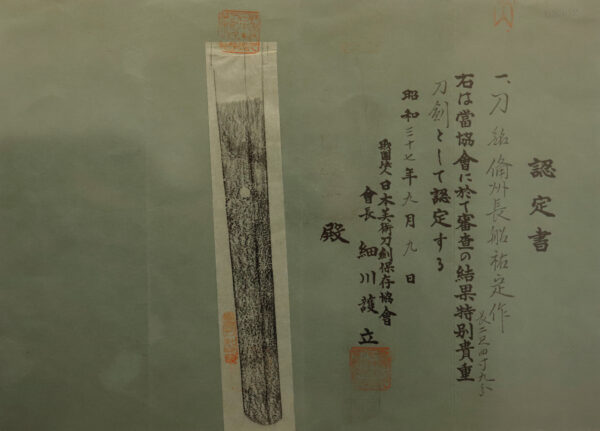 認定書
一、刀 銘 備州長船祐定作
長二尺四寸九分
右は當協會に於て審査の結果特別貴重
刀剣として認定する
昭和三十七年九月九日
財團法人 日本美術刀剣保存協會
會長 細川護立
殿